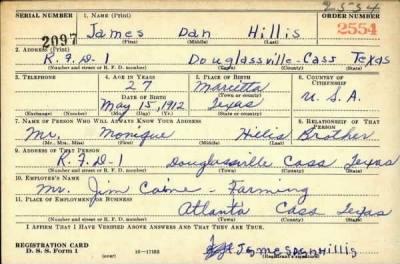 2554
SERIAL NUMBER 1. NAME (Print) ORDER NUMBER
2097 James Dan Hillis 2554
(First) (Middle) (Last)
2. ADDRESS (Print)
R.F.D-1 Douglassville-Cass Texas
(Number and street or R. F. D. number) (Town) (County) (State)
3. TELEPHONE 4. AGE IN YEARS 5. PLACE OF BIRTH 6. COUNTRY OF CITIZENSHIP
27 Marietta
(Town or county)
DATE OF BIRTH
May 15, 1912 Texas U.S.A.
(Exchange) (Number) (Mo.) (Day) (Yr.) (State or country)
7. NAME OF PERSON WHO WILL ALWAYS KNOW YOUR ADDRESS 8. RELATIONSHIP OF THAT PERSON
Mr. Monique Hillis Brother
(Mr., Mrs., Miss) (First) (Middle) (Last)
9. ADDRESS OF THAT PERSON
R.F.D-1 Douglassville Cass Texas
(Number and street or R. F. D. number) (Town) (County) (State)
10. EMPLOYER'S NAME
Mr. Jim Caine - Farming
11. PLACE OF EMPLOYMENT OR BUSINESS
Atlanta Cass Texas
(Number and street or R. F. D. number) (Town) (County) (State)
I AFFIRM THAT I HAVE VERIFIED ABOVE ANSWERS AND THAT THEY ARE TRUE.
REGISTRATION CARD
D. S. S. Form 1 (over) James Dan Hillis
(Registrant's signature)